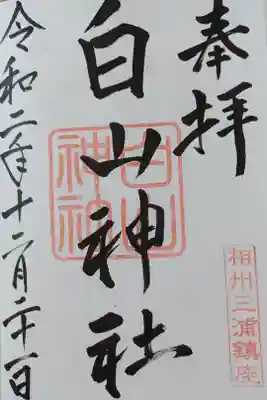 奉拝
白山神社
白山神社
相州三浦鎮座
令和二年十二月二十一日